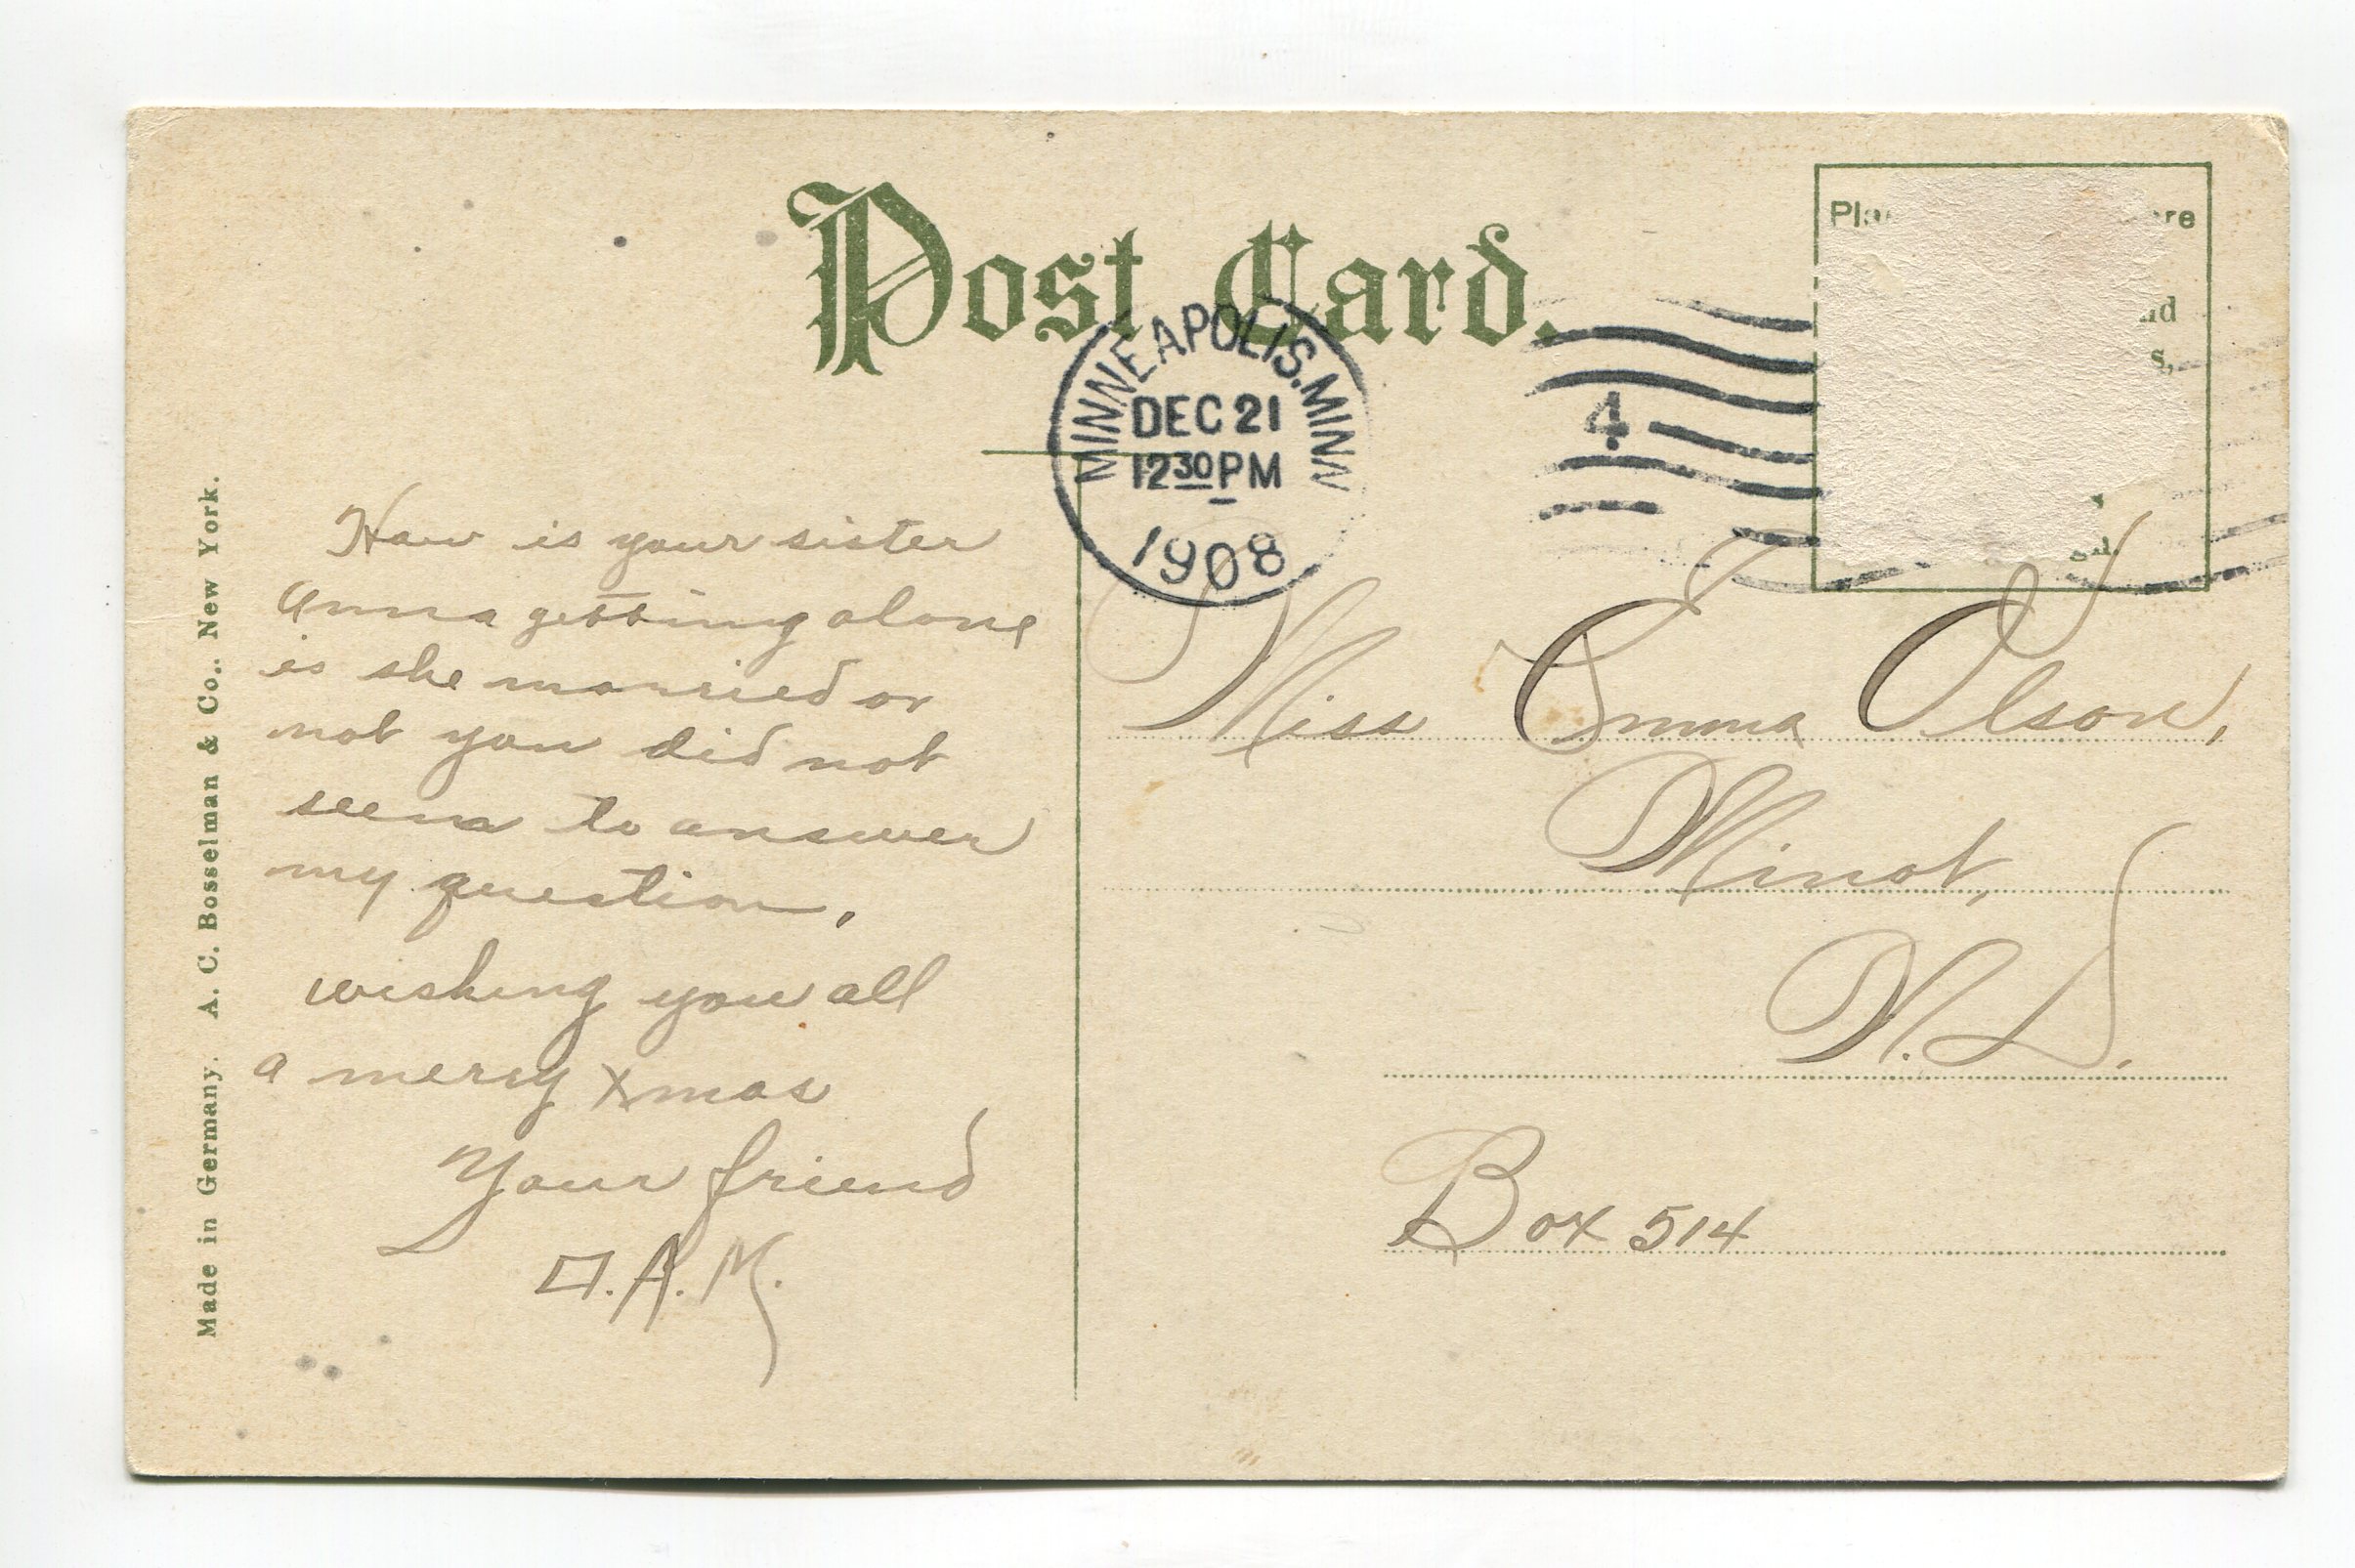 Post Card.
MINNEAPOLIS, MINN
DEC 21
12 30 PM
1908
4
How is your sister
Anna getting along
is she married or
not you did not
seem to answer
my question.
wishing you all
a merry Xmas
Your friend
O. A. M.
Miss Emma Olson,
Minot,
N. D.
Box 514
Made in Germany. A. C. Bosselman & Co., New York.